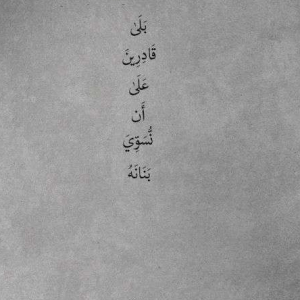 بَلَىٰ
قَادِرِينَ
عَلَىٰ
أَن
نُّسَوِّيَ
بَنَانَهُ